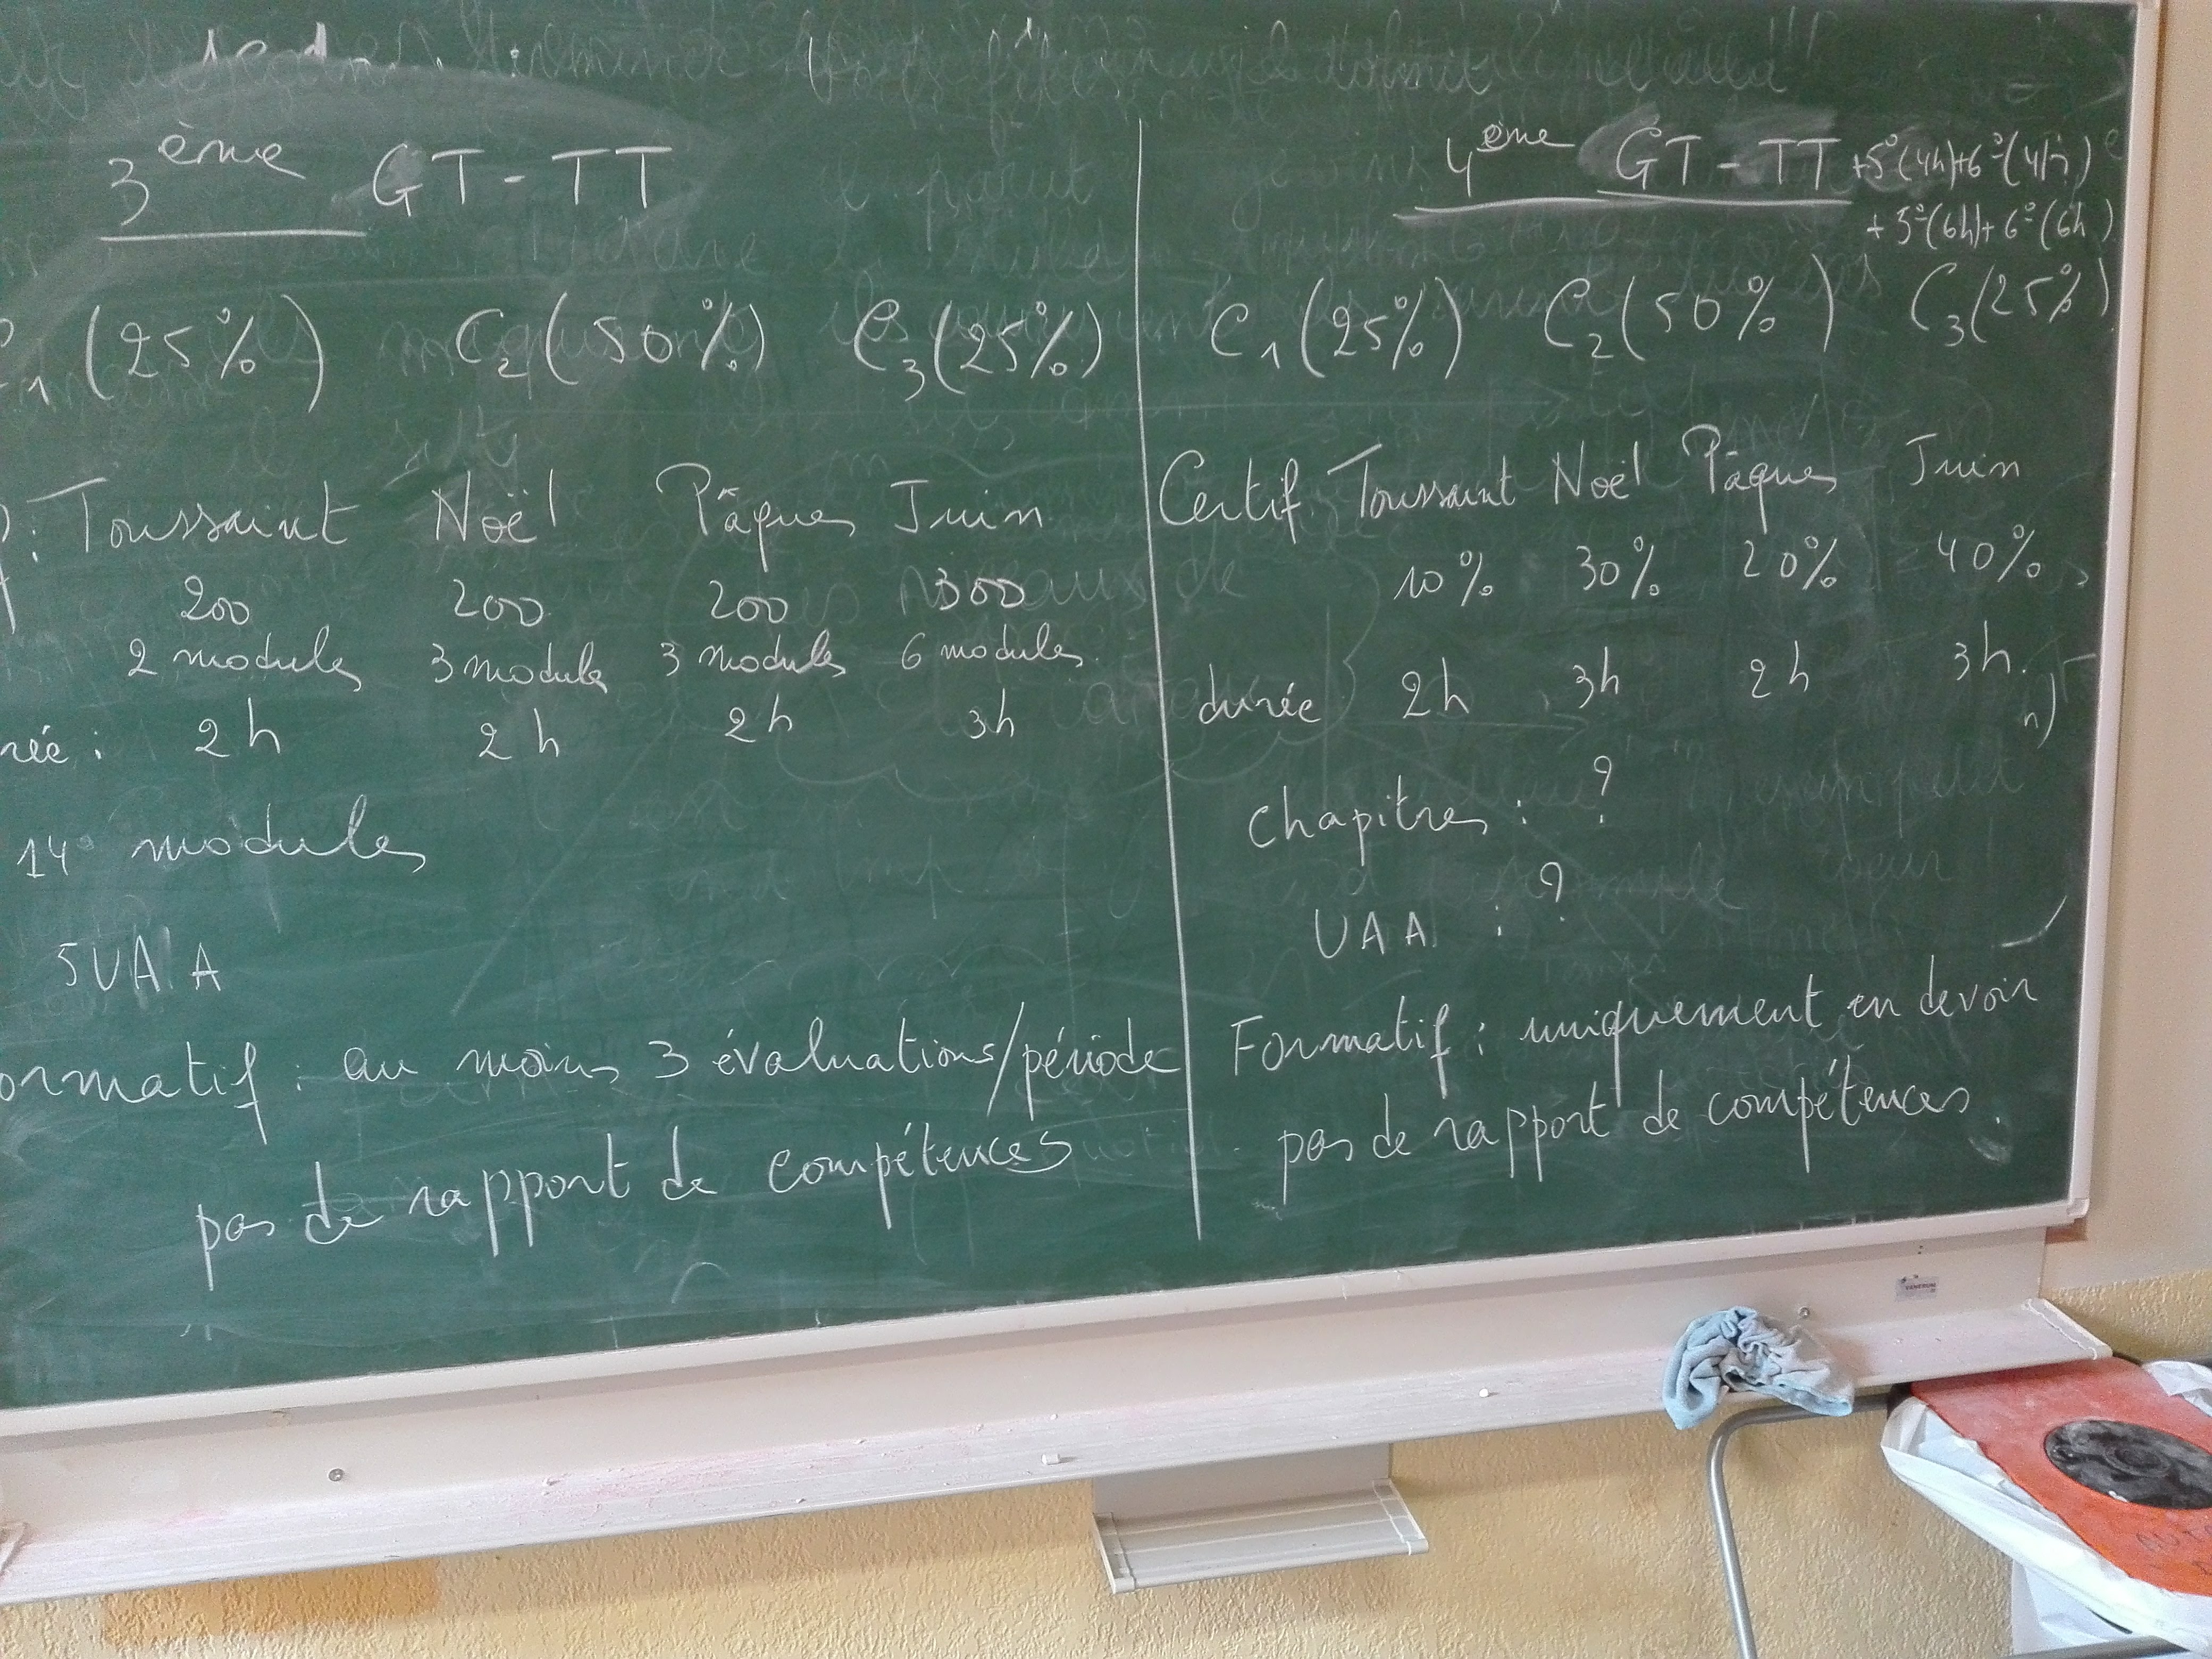 3ème GT-TT
1 (25%) C2 (50%) C3 (25%)
: Toussaint Noël Pâques Juin
200 200 200 300
2 modules 3 modules 3 modules 6 modules
rée : 2h 2h 2h 3h
14 modules
5 UAA
ormatif : au moins 3 évaluations/période
pas de rapport de compétences
4ème GT-TT +5°(4h)+6°(4h)
+5°(6h)+6°(6h)
C1 (25%) C2 (50%) C3 (25%)
Certif Toussaint Noël Pâques Juin
10% 30% 20% 40%
durée 2h 3h 2h 3h.
chapitres : ?
UAA : ?
Formatif : uniquement en devoir
pas de rapport de compétences.